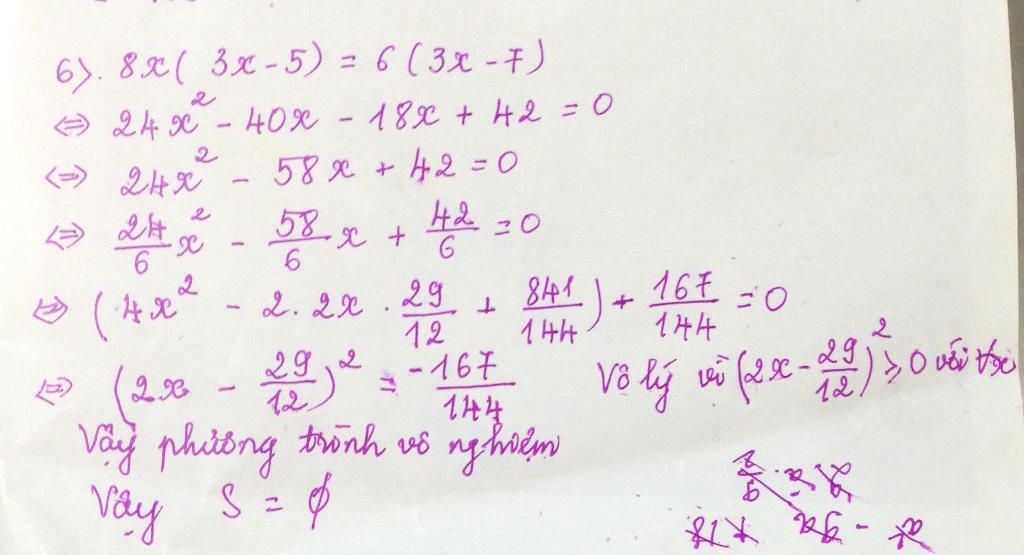 6). 8x( 3x - 5) = 6 (3x - 7)
⇔ 24x² - 40x - 18x + 42 = 0
⇔ 24x² - 58x + 42 = 0
⇔ 24/6 x² - 58/6 x + 42/6 = 0
⇔ (4x² - 2. 2x . 29/12 + 841/144) + 167/144 = 0
⇔ (2x - 29/12)² = -167/144 Vô lý vì (2x - 29/12)² ≥ 0 với ∀x
Vậy phương trình vô nghiệm
Vậy S = ∅